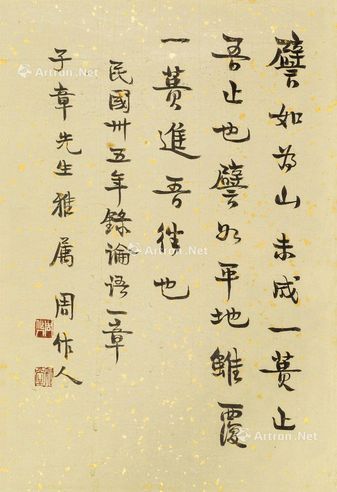 譬如為山未成一蕢止
吾止也譬如平地雖覆
一蕢進吾往也
民國卅五年錄論語一章
子章先生雅属 周作人
Artron.Net
Artron.Net
Artron.Net
Artron.Net